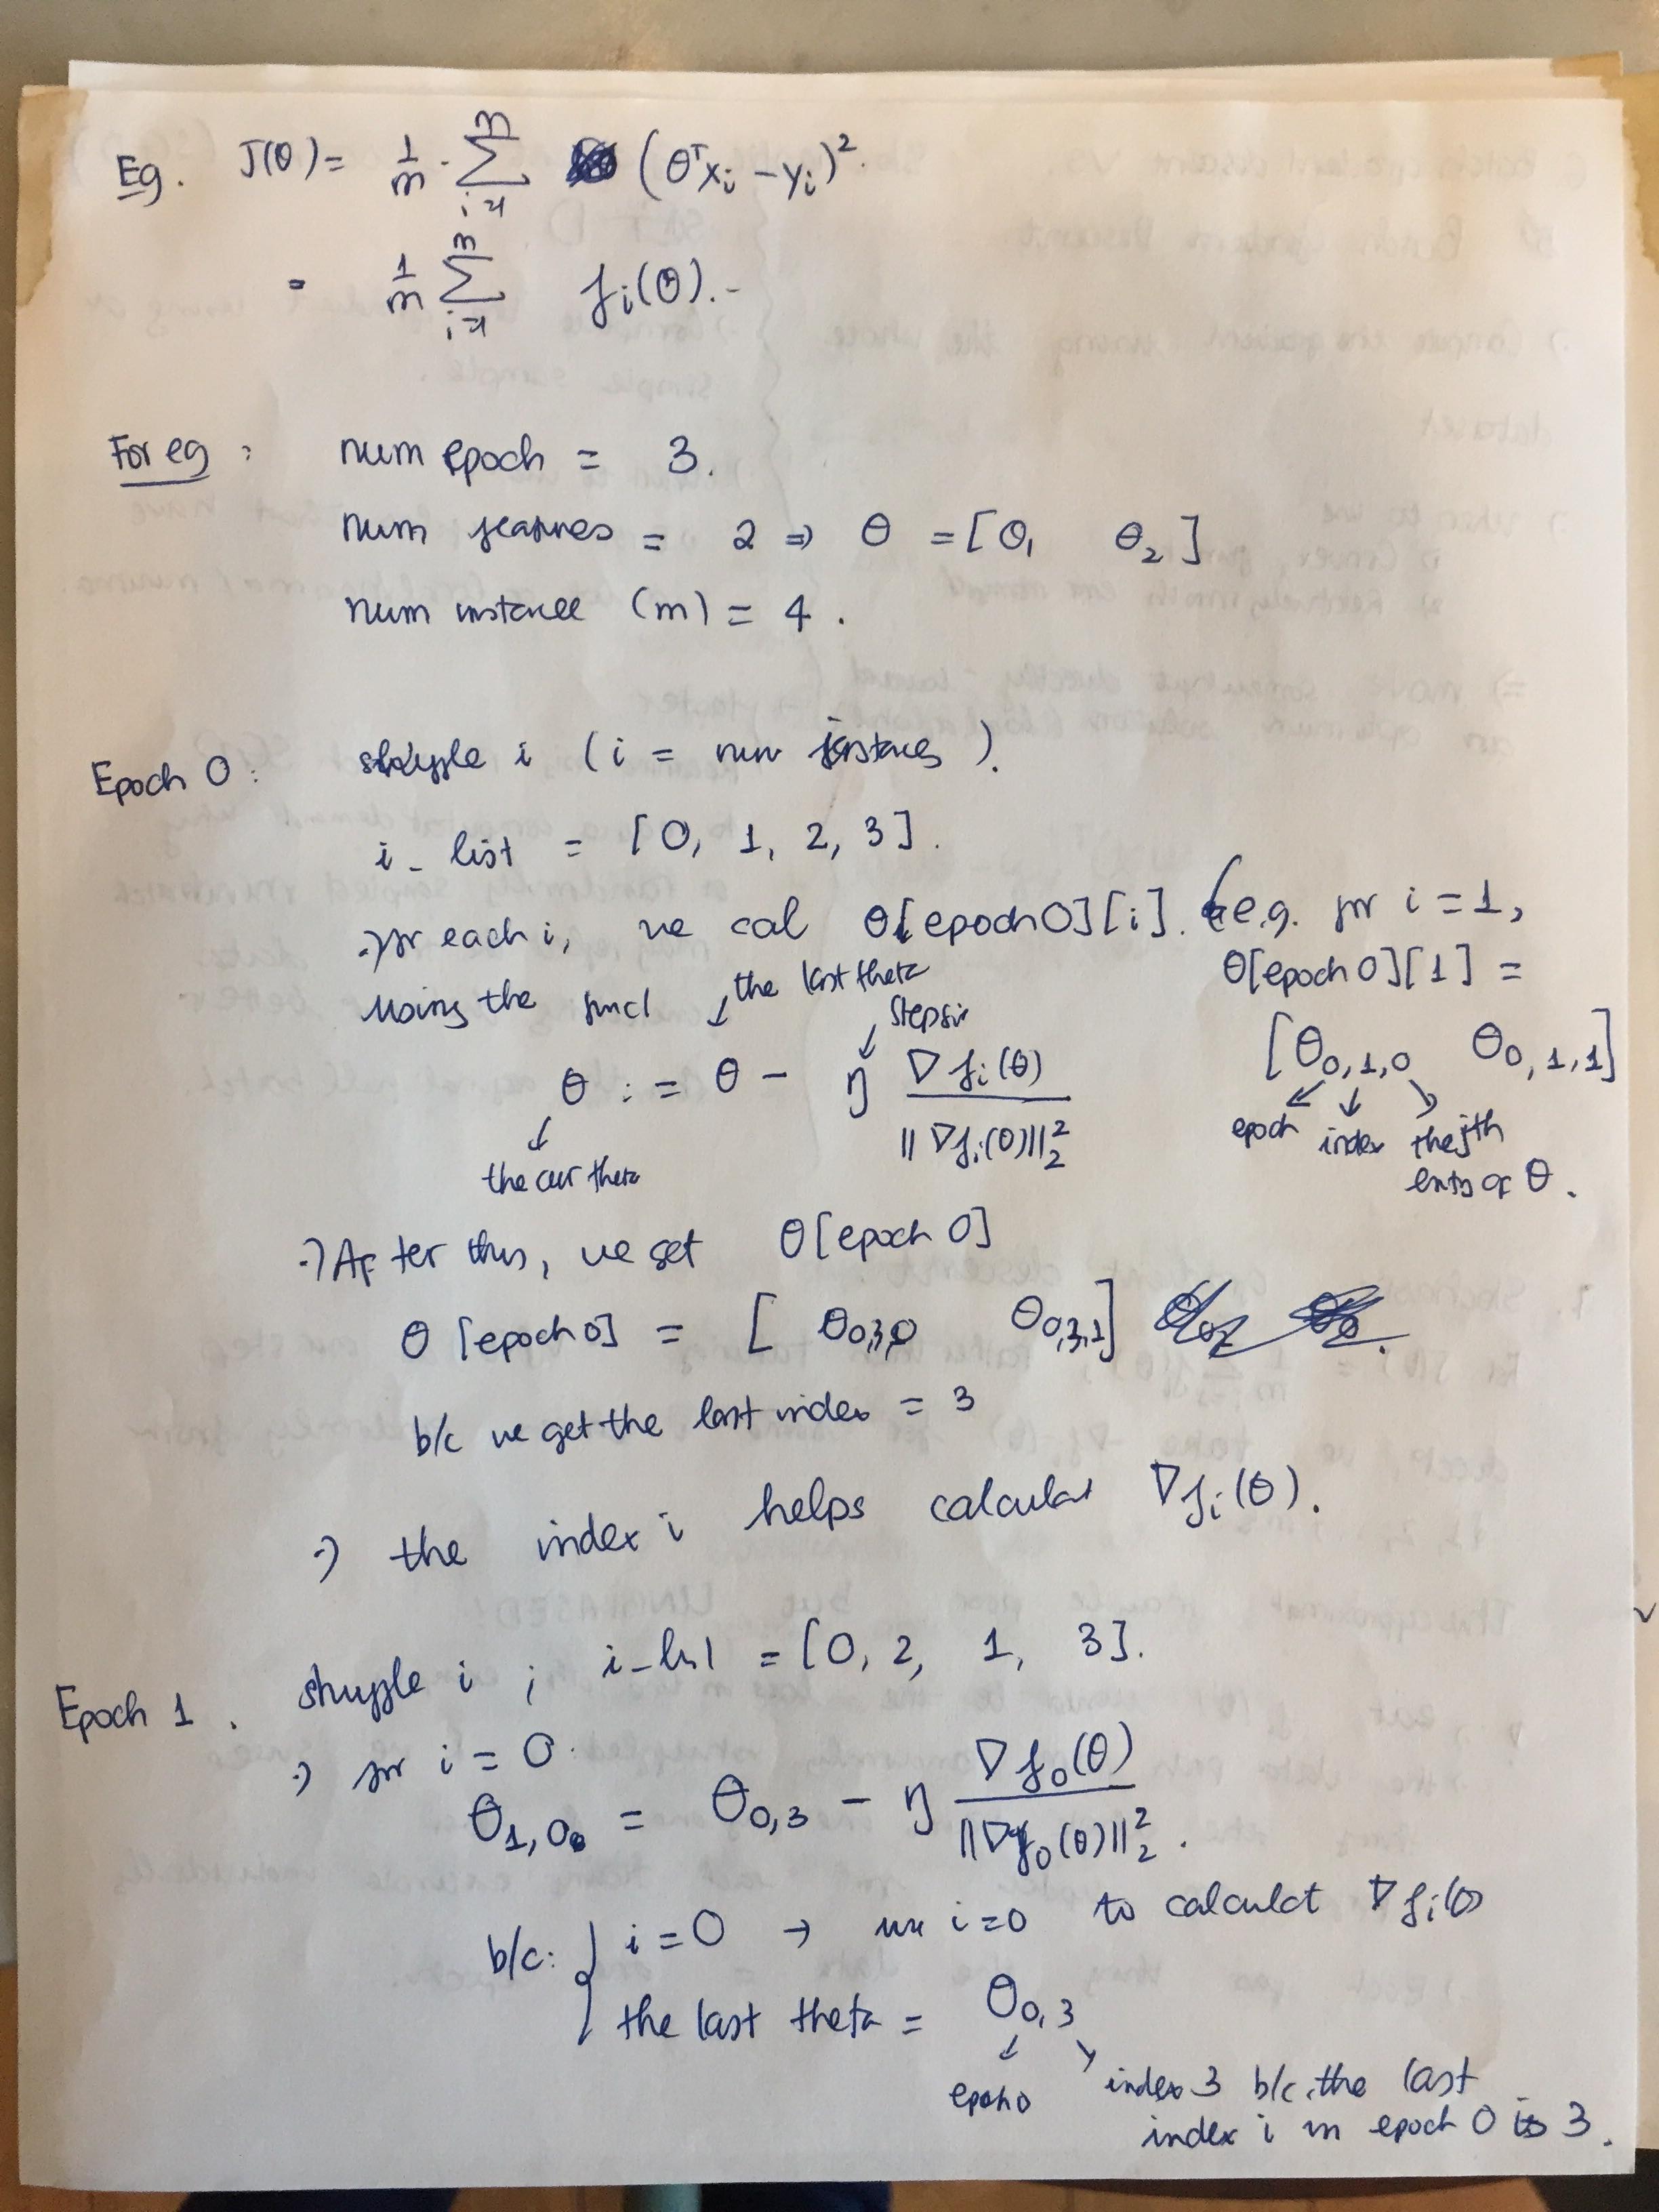 Eg. J(θ) = 1/m · Σ_{i=1}^{m} (θᵀxᵢ - yᵢ)².
= 1/m Σ_{i=1}^{m} fᵢ(θ).
For eg : num epoch = 3.
num features = 2 ⇒ θ = [θ₁ θ₂]
num instance (m) = 4.
Epoch 0: shuffle i (i = num instances).
i_list = [0, 1, 2, 3].
→ for each i, we cal θ[epoch 0][i]. (e.g. for i = 1,
θ[epoch 0][1] =
[θ_{0,1,0} θ_{0,1,1}]
epoch index the jth
entry of θ.
using the func the last theta
stepsize
θ := θ - η ∇fᵢ(θ) / ||∇fᵢ(θ)||₂²
the cur theta
→ After this, we set θ[epoch 0]
θ[epoch 0] = [θ_{0,3,0} θ_{0,3,1}]
b/c we get the last index = 3
→ the index i helps calculat ∇fᵢ(θ).
Epoch 1. shuffle i ; i_list = [0, 2, 1, 3].
→ for i = 0.
θ_{1,0} = θ_{0,3} - η ∇f₀(θ) / ||∇f₀(θ)||₂².
b/c: { i = 0 → use i = 0 to calculat ∇fᵢ(θ)
the last theta = θ_{0,3}
epoch 0 index 3 b/c the last
index i in epoch 0 is 3.